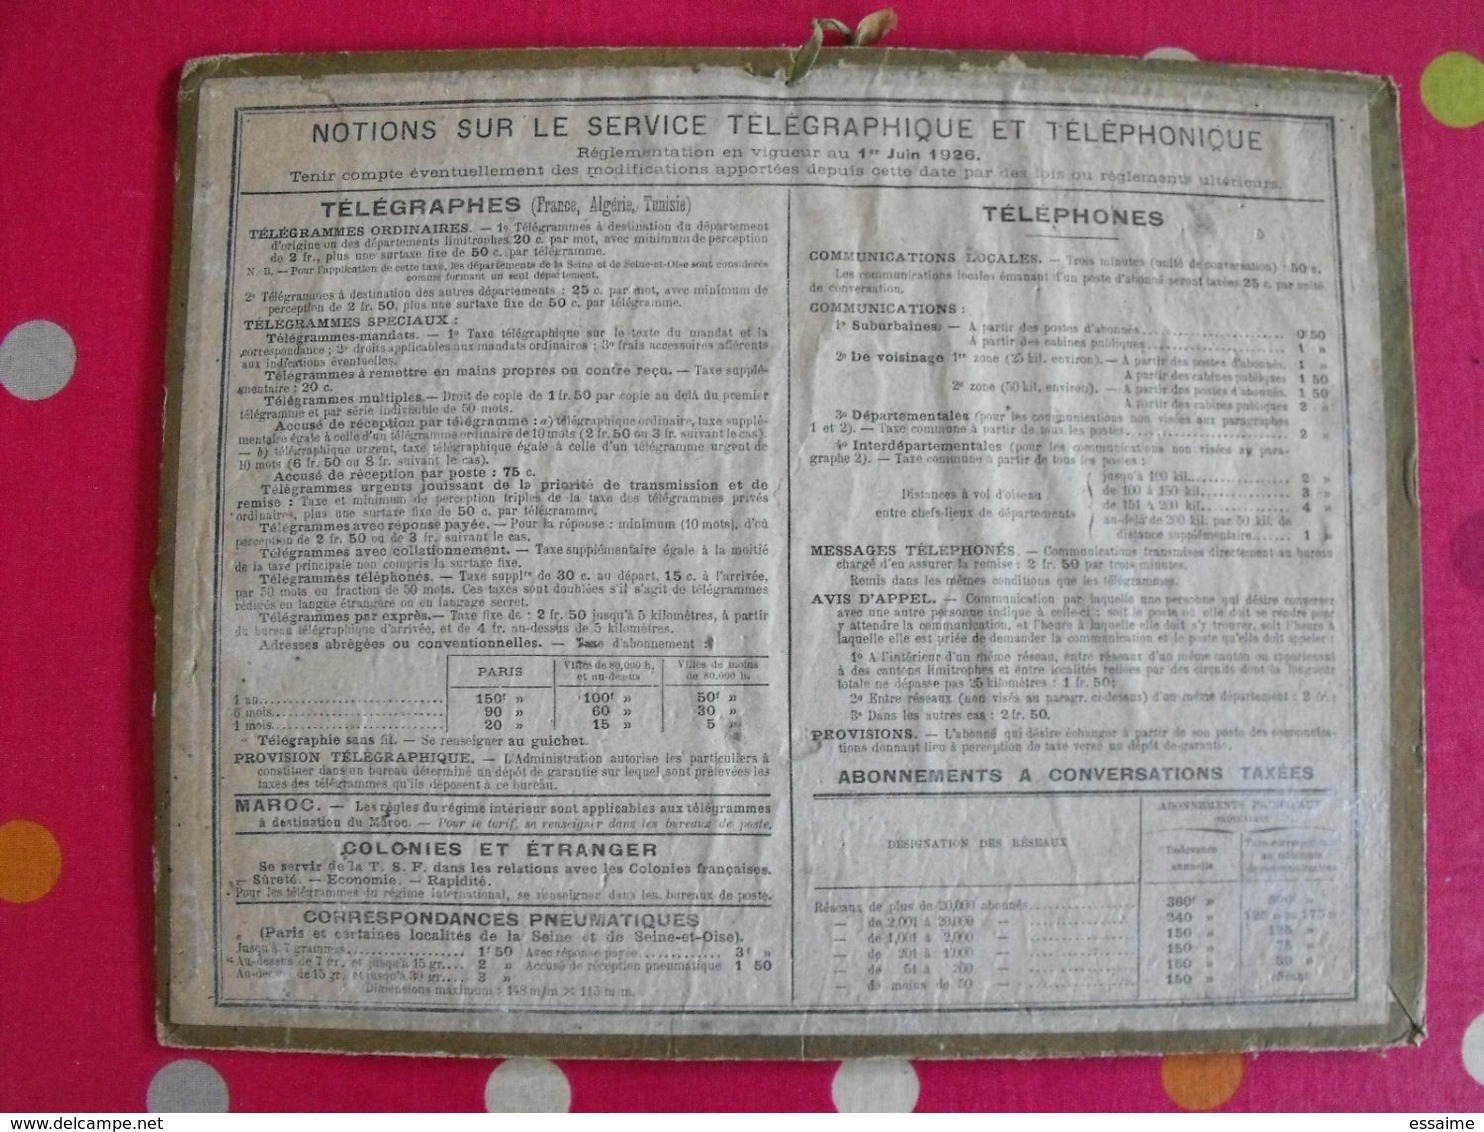 NOTIONS SUR LE SERVICE TÉLÉGRAPHIQUE ET TÉLÉPHONIQUE
Réglementation en vigueur au 1er Juin 1926.
Tenir compte éventuellement des modifications apportées depuis cette date par des lois ou règlements ultérieurs.
TÉLÉGRAPHES (France, Algérie, Tunisie)
TÉLÉGRAMMES ORDINAIRES. — 1o Télégrammes à destination du département
d'origine ou des départements limitrophes 20 c. par mot, avec minimum de perception
de 2 fr., plus une surtaxe fixe de 50 c. par télégramme.
N. B. — Pour l'application de cette taxe, les départements de la Seine et de Seine-et-Oise sont considérés
comme formant un seul département.
2o Télégrammes à destination des autres départements : 25 c. par mot, avec minimum de
perception de 2 fr. 50, plus une surtaxe fixe de 50 c. par télégramme.
TÉLÉGRAMMES SPÉCIAUX :
Télégrammes-mandats. — 1o Taxe télégraphique sur le texte du mandat et la
correspondance ; 2o droits applicables aux mandats ordinaires ; 3o frais accessoires afférents
aux indications éventuelles.
Télégrammes à remettre en mains propres ou contre reçu. — Taxe supplé-
mentaire : 20 c.
Télégrammes multiples. — Droit de copie de 1 fr. 50 par copie au delà du premier
télégramme et par série indivisible de 50 mots.
Accusé de réception par télégramme : a) télégraphique ordinaire, taxe supplé-
mentaire égale à celle d'un télégramme ordinaire de 10 mots (2 fr. 50 ou 3 fr. suivant le cas).
— b) télégraphique urgent, taxe télégraphique égale à celle d'un télégramme urgent de
10 mots (6 fr. 50 ou 8 fr. suivant le cas).
Accusé de réception par poste : 75 c.
Télégrammes urgents jouissant de la priorité de transmission et de
remise : Taxe et minimum de perception triples de la taxe des télégrammes privés
ordinaires, plus une surtaxe fixe de 50 c. par télégramme.
Télégrammes avec réponse payée. — Pour la réponse : minimum (10 mots), d'où
perception de 2 fr. 50 ou de 3 fr. suivant le cas.
Télégrammes avec collationnement. — Taxe supplémentaire égale à la moitié
de la taxe principale non compris la surtaxe fixe.
Télégrammes téléphonés. — Taxe supplre de 30 c. au départ, 15 c. à l'arrivée,
par 50 mots ou fraction de 50 mots. Ces taxes sont doublées s'il s'agit de télégrammes
rédigés en langue étrangère ou en langage secret.
Télégrammes par exprès. — Taxe fixe de : 2 fr. 50 jusqu'à 5 kilomètres, à partir
du bureau télégraphique d'arrivée, et de 4 fr. au-dessus de 5 kilomètres.
Adresses abrégées ou conventionnelles. — Taxe d'abonnement :
PARIS Villes de 80,000 h. et au-dessus Villes de moins de 80.000 h.
1 an 150f » 100f » 50f »
6 mois 90 » 60 » 30 »
1 mois 20 » 15 » 5 »
Télégraphie sans fil. — Se renseigner au guichet.
PROVISION TÉLÉGRAPHIQUE. — L'Administration autorise les particuliers à
constituer dans un bureau déterminé un dépôt de garantie sur lequel sont prélevées les
taxes des télégrammes qu'ils déposent à ce bureau.
MAROC. — Les règles du régime intérieur sont applicables aux télégrammes
à destination du Maroc. — Pour le tarif, se renseigner dans les bureaux de poste.
COLONIES ET ÉTRANGER
Se servir de la T. S. F. dans les relations avec les Colonies françaises.
— Sûreté. — Economie. — Rapidité.
Pour les télégrammes du régime international, se renseigner dans les bureaux de poste.
CORRESPONDANCES PNEUMATIQUES
(Paris et certaines localités de la Seine et de Seine-et-Oise).
Jusqu'à 7 grammes 1f 50 Avec réponse payée 3f »
Au-dessus de 7 gr. et jusqu'à 15 gr. 2 » Accusé de réception pneumatique 1 50
Au-dessus de 15 gr. et jusqu'à 30 gr. 3 »
Dimensions maximum : 148 m/m × 115 m/m.
TÉLÉPHONES
COMMUNICATIONS LOCALES. — Trois minutes (unité de conversation) : 50 c.
Les communications locales émanant d'un poste d'abonné seront taxées 25 c. par unité
de conversation.
COMMUNICATIONS :
1o Suburbaines. — A partir des postes d'abonnés 0 50
A partir des cabines publiques 1 »
2o De voisinage 1re zone (25 kil. environ). — A partir des postes d'abonnés. 1 »
A partir des cabines publiques 1 50
2e zone (50 kil. environ). — A partir des postes d'abonnés. 1 50
A partir des cabines publiques 2 »
3o Départementales (pour les communications non visées aux paragraphes
1 et 2). — Taxe commune à partir de tous les postes 2 »
4o Interdépartementales (pour les communications non visées au para-
graphe 2). — Taxe commune à partir de tous les postes :
Distances à vol d'oiseau
entre chefs-lieux de départements
jusqu'à 100 kil. 2 »
de 100 à 150 kil. 3 »
de 151 à 200 kil. 4 »
au-delà de 200 kil. par 50 kil. de
distance supplémentaire 1 »
MESSAGES TÉLÉPHONÉS. — Communications transmises directement au bureau
chargé d'en assurer la remise : 2 fr. 50 par trois minutes.
Remis dans les mêmes conditions que les télégrammes.
AVIS D'APPEL. — Communication par laquelle une personne qui désire converser
avec une autre personne indique à celle-ci : soit le poste où elle doit se rendre pour
y attendre la communication, et l'heure à laquelle elle doit s'y trouver, soit l'heure à
laquelle elle est priée de demander la communication et le poste qu'elle doit appeler :
1o A l'intérieur d'un même réseau, entre réseaux d'un même canton ou appartenant
à des cantons limitrophes et entre localités reliées par des circuits dont la longueur
totale ne dépasse pas 25 kilomètres : 1 fr. 50;
2o Entre réseaux (non visés au paragr. ci-dessus) d'un même département : 2 fr.;
3o Dans les autres cas : 2 fr. 50.
PROVISIONS. — L'abonné qui désire échanger à partir de son poste des communica-
tions donnant lieu à perception de taxe verse un dépôt de garantie.
ABONNEMENTS A CONVERSATIONS TAXÉES
DÉSIGNATION DES RÉSEAUX
ABONNEMENTS PRINCIPAUX
ORDINAIRES
Redevance annuelle
Réseaux de plus de 20,000 abonnés 360f »
— de 2,001 à 20,000 — 240 »
— de 1,001 à 2,000 — 150 » 125
— de 201 à 1,000 — 150 » 75
— de 51 à 200 — 150 » 50
— de moins de 50 — 150 » (Néant)
essaime
DELCAMPE.NET